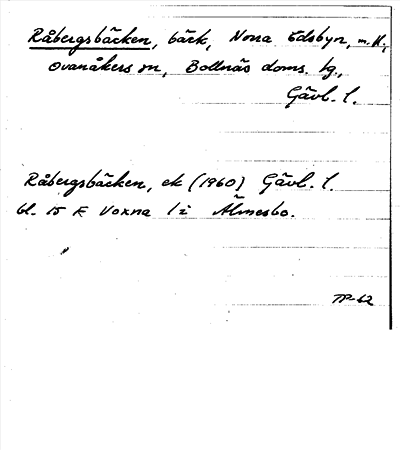 Råbergsbäcken, bäck, Norra Edsbyn, m. fl.,
Ovanåkers sn, Bollnäs doms. tg.,
Gävl. l.
Råbergsbäcken, ek (1960) Gävl. l.
bl. 15 F Voxna l i Älmesbo.
TP-62